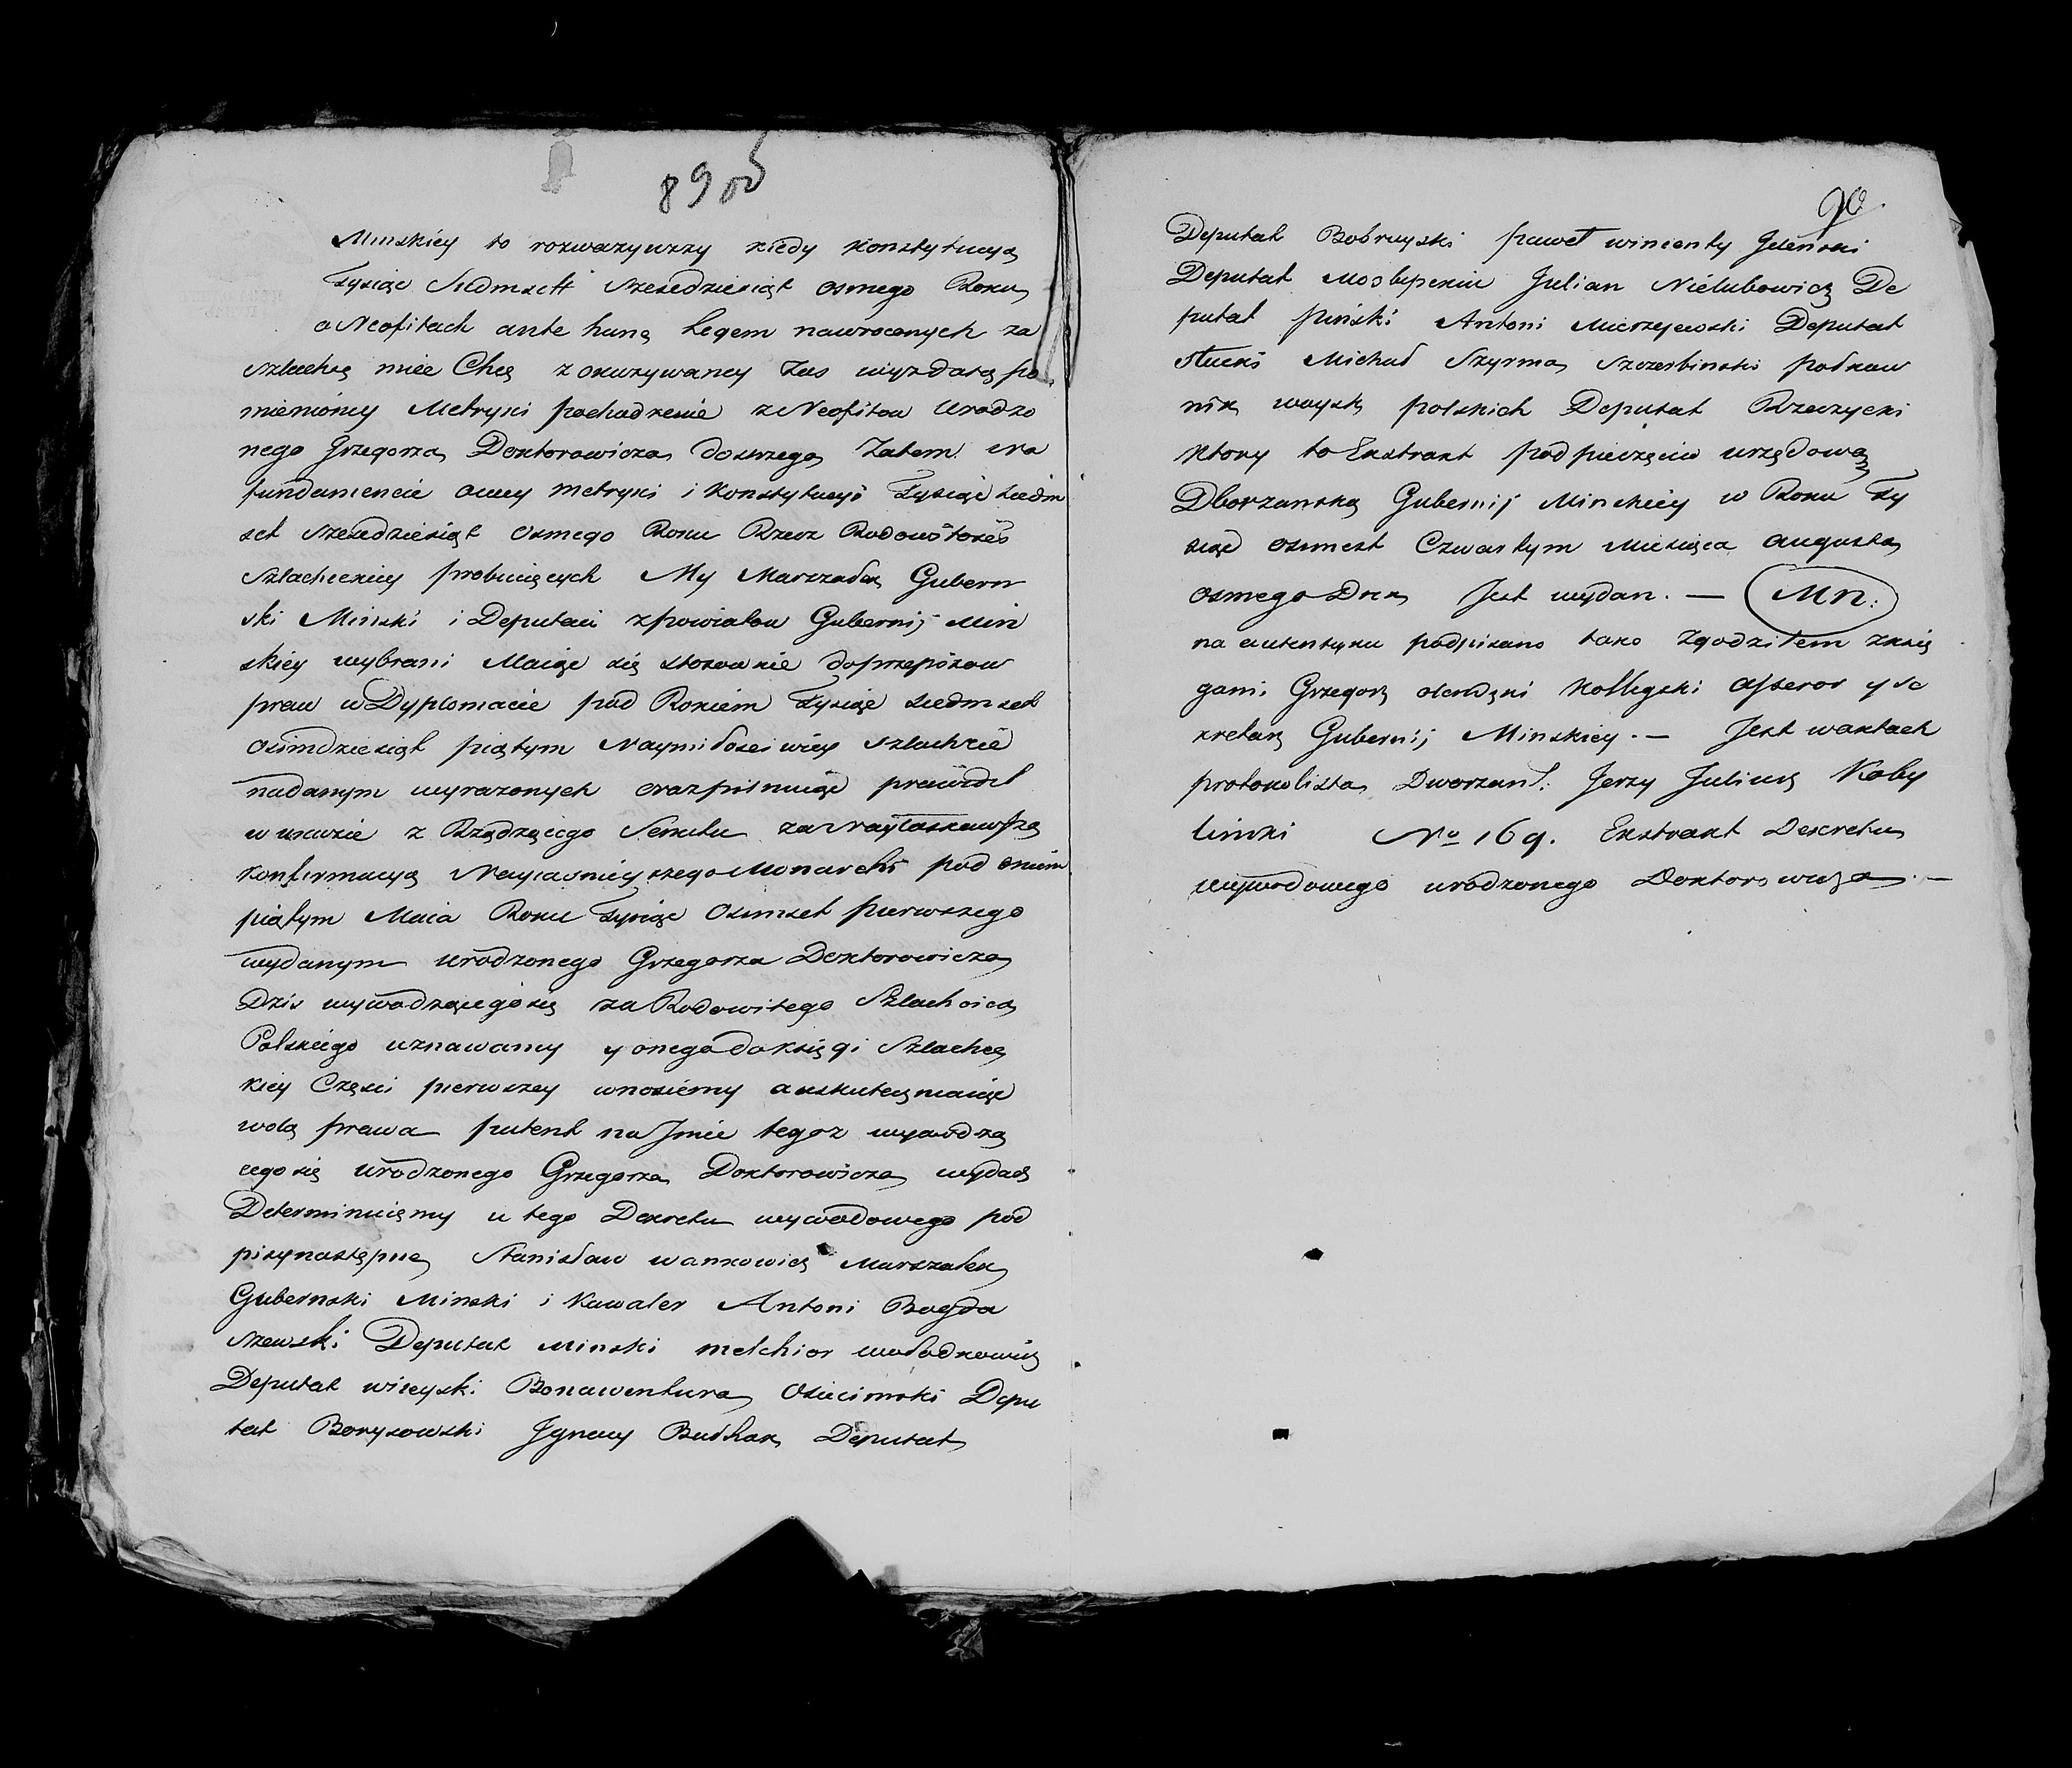 89 об
Minskiey to rozwazywszy kiedy konstytucya
Tysiąc Siedmsett szesedziesiąt osmego Roku
o Neofitach ante hanc legem nawroconych za
szlachtę miec Chcę z okazywaney Zas więzdatą po
mienioney Metryki pochodzenie z Neofitow Urodzo
nego Grzegorza Doktorowicza dostrzega Zatem na
fundamencie owey metryki i konstytucyi Tysiąc siedm
set szesedziesiąt osmego Roku Rzecz Rodowitosci
szlacheckiey probuiących My Marszałek Guberń
ski Minski i Deputaci z powiatow Gubernij Min
skiey wybrani Maiąc się stosownie do przepisow
praw w Dyplomacie pod Rokiem Tysiąc siedmset
osimdziesiąt piątym Naymiłosciwiey szlachcie
nadanym wyrazonych oraz pilnuiąc prawideł
w ukazie z Rządzącego Senatu za Nayłaskawszą
konfirmacyą Nayiasnieyszego Monarchi pod dniem
piątym Maia Roku Tysiąc Osimset pierwszego
wydanym urodzonego Grzegorza Doktorowicza
Dzis wywodzącego się za Rodowitego Szlachcica
Polskiego uznawamy y onego do księgi Szlachec
kiey Częsci pierwszey wnosiemy a uskuteczniaiąc
wolą prawa patent na Jmie tegoz wywodzą
cego się urodzonego Grzegorza Doktorowicza wydać
Determinuięmy u tego Dekretu wywodowego pod
pisy następne Stanisław Wankowicz Marszałek
Gubernski Minski i Kawaler Antoni Bogda
szewski Deputat Minski Melchior Wołodkowicz
Deputat wileyski Bonawentura Osiecimski Depu
tat Borysowski Jgnacy Bułhak Deputat
90
Deputat Bobruyski Paweł wincenty Jelenski
Deputat Mozyrski Julian Nielubowicz De
putat pinski Antoni Mierzejewski Deputat
słucki Michał Szyrma Szczerbinski połkow
nik woysk polskich Deputat Rzeczycki
ktory to Ekstrakt pod pieczęcią urzędową
Dworzanską Gubernij Minskiey w Roku Ty
siąc osimset Czwartym Miesiąca augusta
osmego Dnia Jest wydan. — Mn:
na autentyku podpisano tako Zgodziłem z ksią
gami Grzegorz kollegski Assesor y se
kretarz Gubernij Minskiey. — Jest w aktach
protokolista Dworzanś: Jerzy Juliusz Koby
linski No 169. Ekstrakt Dekretu
wywodowego urodzonego Doktorowicza. —